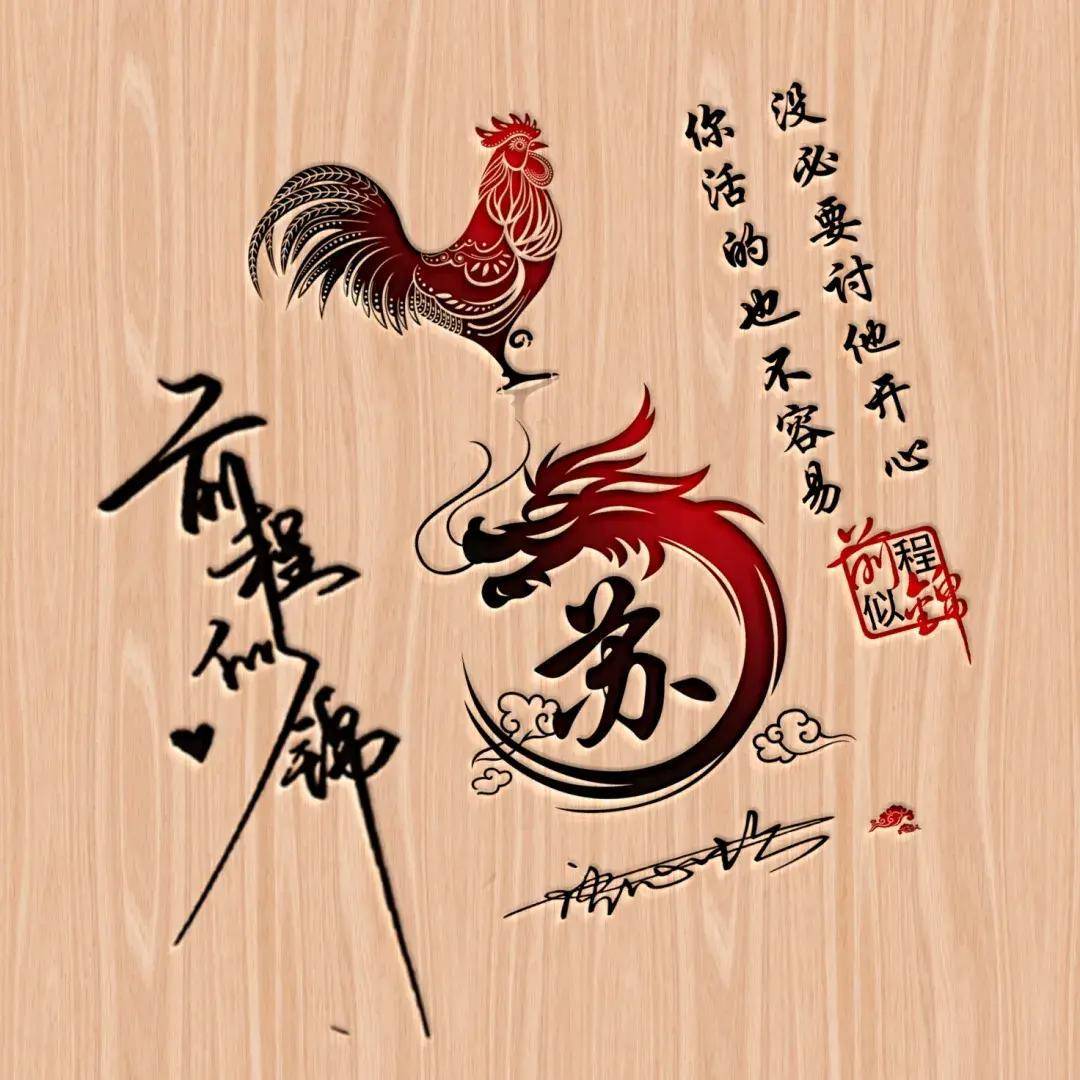 没必要讨他开心
你活的也不容易
前程似锦
苏
前程似锦